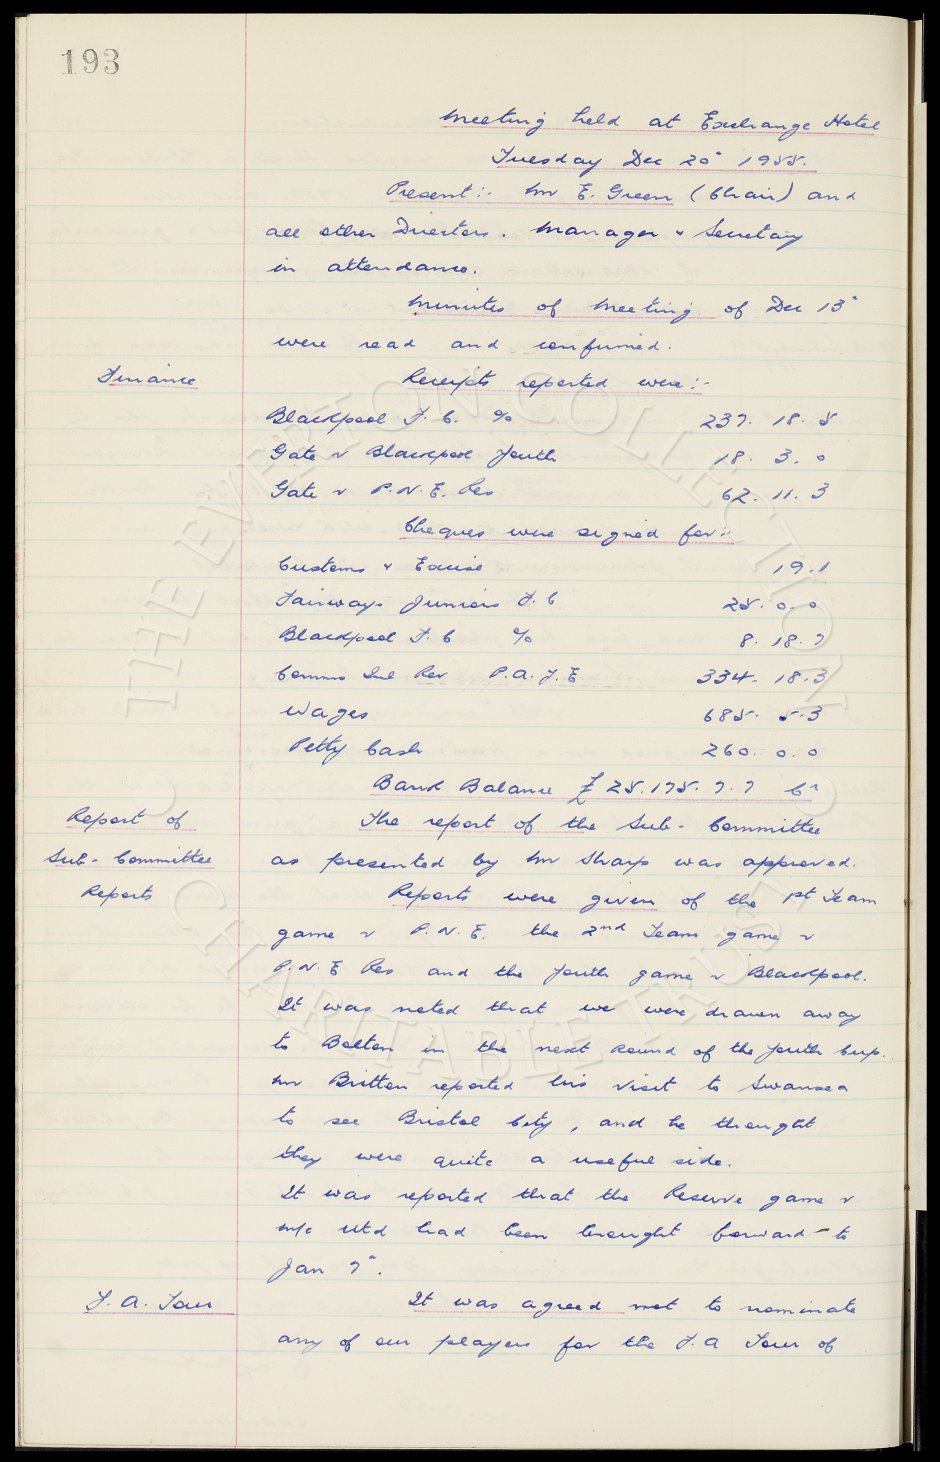 193
Meeting held at Exchange Hotel
Tuesday Dec 20" 1955.
Present:- Mr E. Green (Chair) and
all other Directors. Manager & Secretary
in attendance.
Minutes of Meeting of Dec 13"
were read and confirmed.
Finance
Receipts reported were:-
Blackpool F. C. % 237. 18. 5
Gate v Blackpool Youth 18. 3. 0
Gate v P.N.E. Res 62. 11. 3
Cheques were signed for:-
Customs & Excise 19. 1
Fairways Juniors F. C 25. 0. 0
Blackpool F. C % 8. 18. 7
Comms Inl Rev P.A.Y.E 334. 18. 3
Wages 685. 5. 3
Petty Cash 260. 0. 0
Bank Balance £25.175.7.7 Cr
Report of
Sub-Committee
The report of the Sub-Committee
as presented by Mr Sharp was approved.
Reports
Reports were given of the 1st Team
game v P.N.E. the 2nd Team game v
P.N.E Res and the Youth game v Blackpool.
It was noted that we were drawn away
to Bolton in the next Round of the Youth Cup.
Mr Britten reported his visit to Swansea
to see Bristol City, and he thought
they were quite a useful side.
It was reported that the Reserve game v
M/c Utd had been brought forward to
Jan 7".
F.A. Tour
It was agreed not to nominate
any of our players for the F.A Tour of
© THE EVERTON COLLECTION
CHARITABLE TRUST